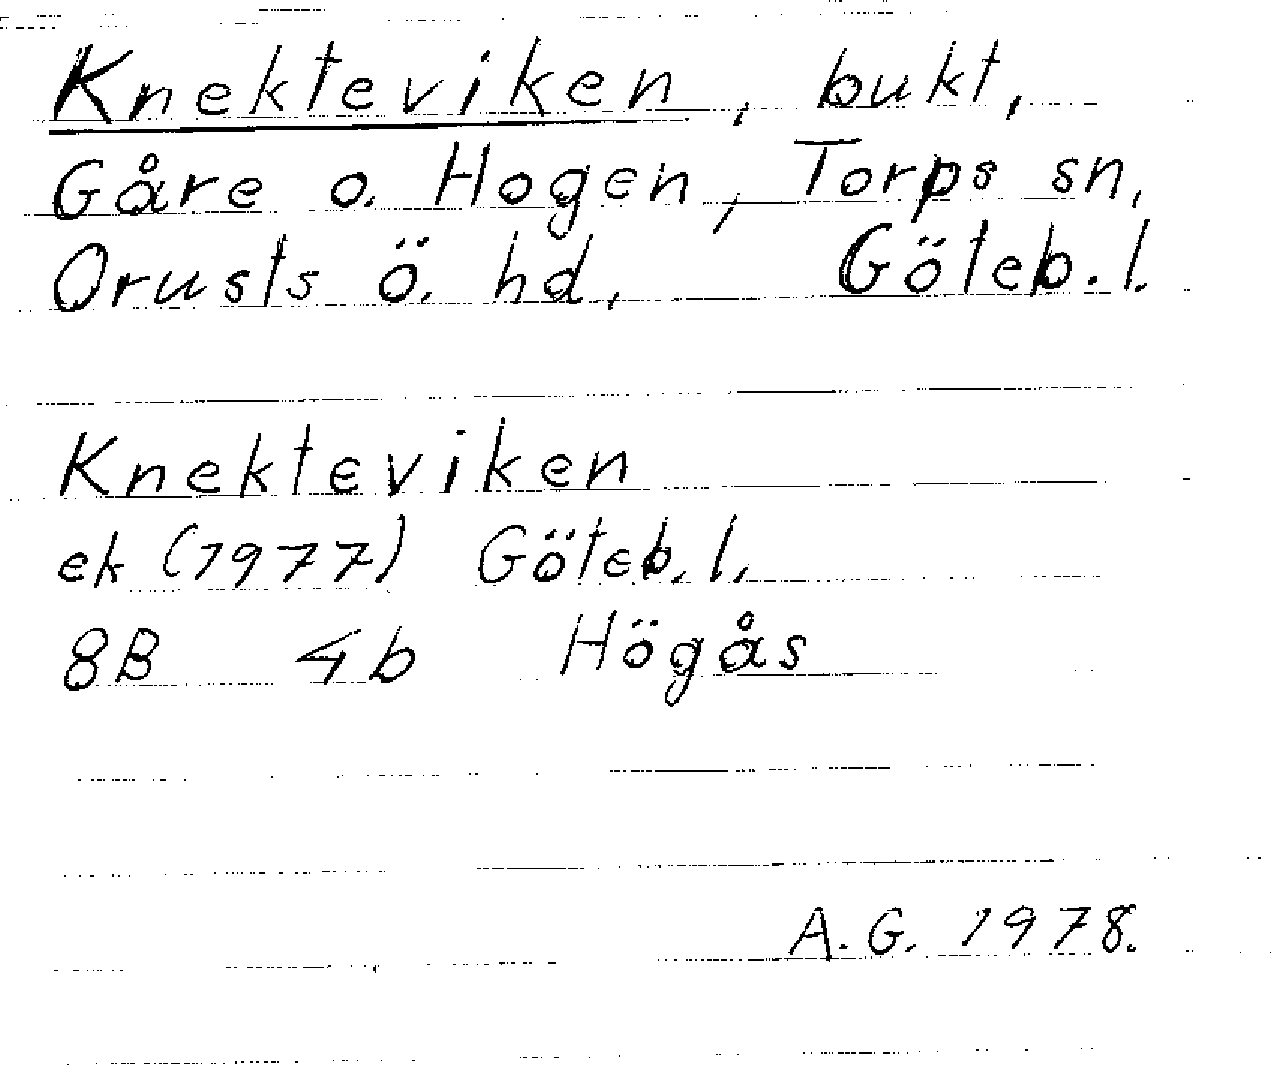 Knekteviken, bukt,
Gåre o. Hogen, Torps sn,
Orusts ö. hd, Göteb. l.
Knekteviken
ek (1977) Göteb. l.
8B 4b Högås
A. G. 1978.